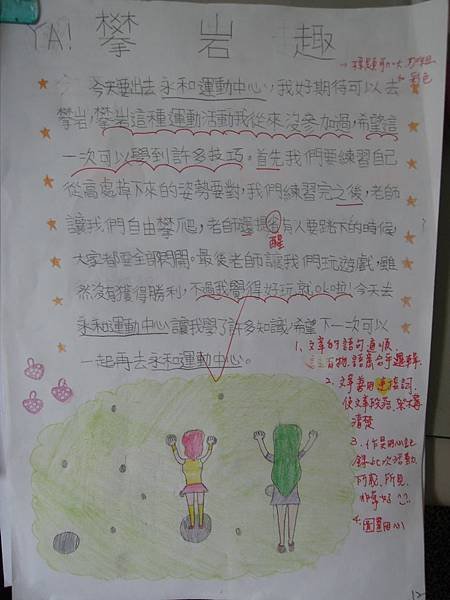 YA! 攀岩趣
→標題可以
彩色
今天要出去永和運動中心,我好期待可以去
攀岩,攀岩這種運動活動我從來沒參加過,希望這
一次可以學到許多技巧。首先我們要練習自己
從高處掉下來的姿勢要對,我們練習完之後,老師
讓我們自由攀爬,老師還提省有人要踏下的時候,
醒
大家都要全部閃開。最後老師讓我們玩遊戲,雖
然沒有獲得勝利,不過我覺得好玩就OK啦!今天去
永和運動中心讓我學了許多知識,希望下一次可以
一起再去永和運動中心。
1、文章的語句通順
語意合乎邏輯。
2、文章善用連接詞,
使文章段落
清楚
3、作者用心記
錄此次活動
所聽、所見
非常好
4、圖畫用心
12